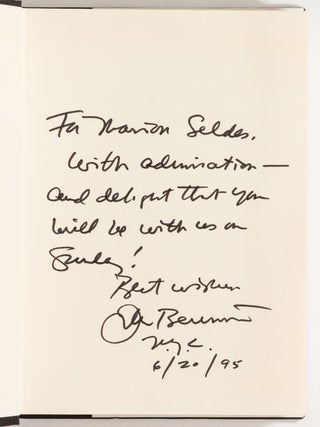 For Marian Seldes,
With admiration—
and delight that you
will be with us on
Sunday!
Best wishes
N.Y.C.
6/20/95